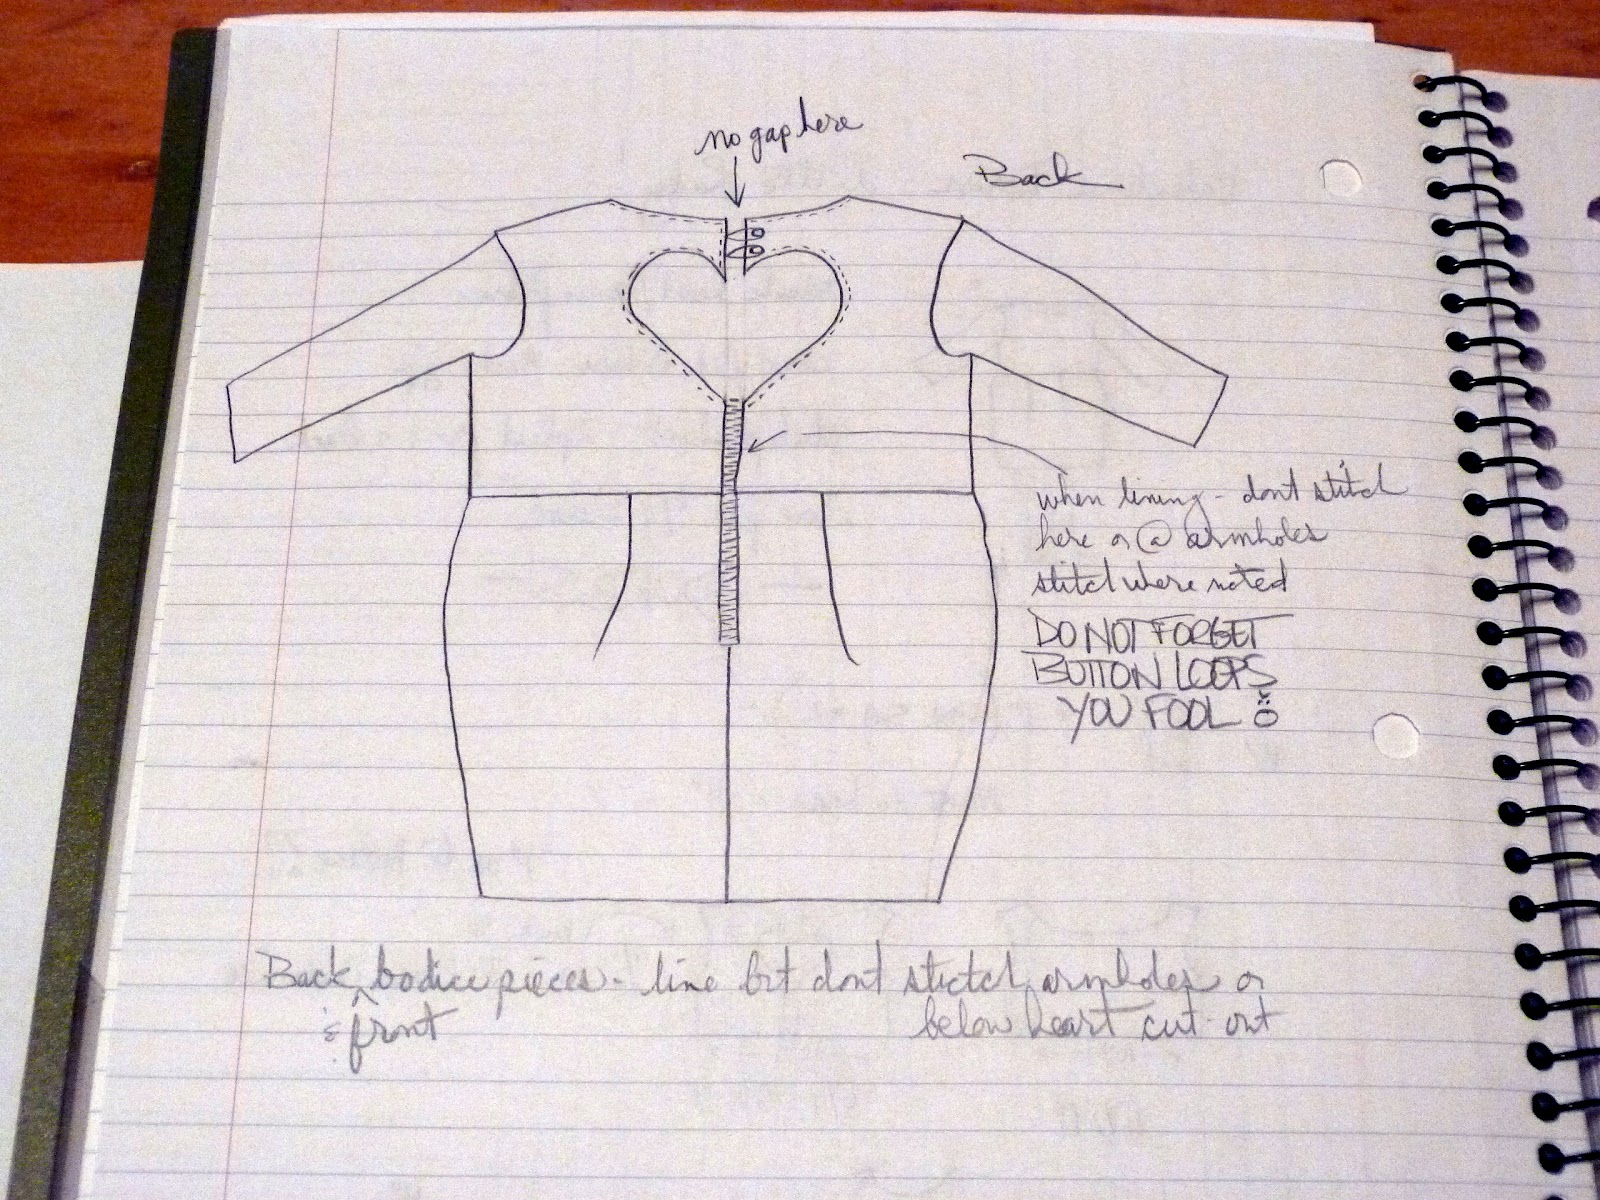 no gap here
Back
when lining - dont stitch
here or @ armholes
stitch where noted
DO NOT FORGET
BUTTON LOOPS
YOU FOOL
Back bodice pieces - line but dont stitch armholes or
& front below heart cut-out